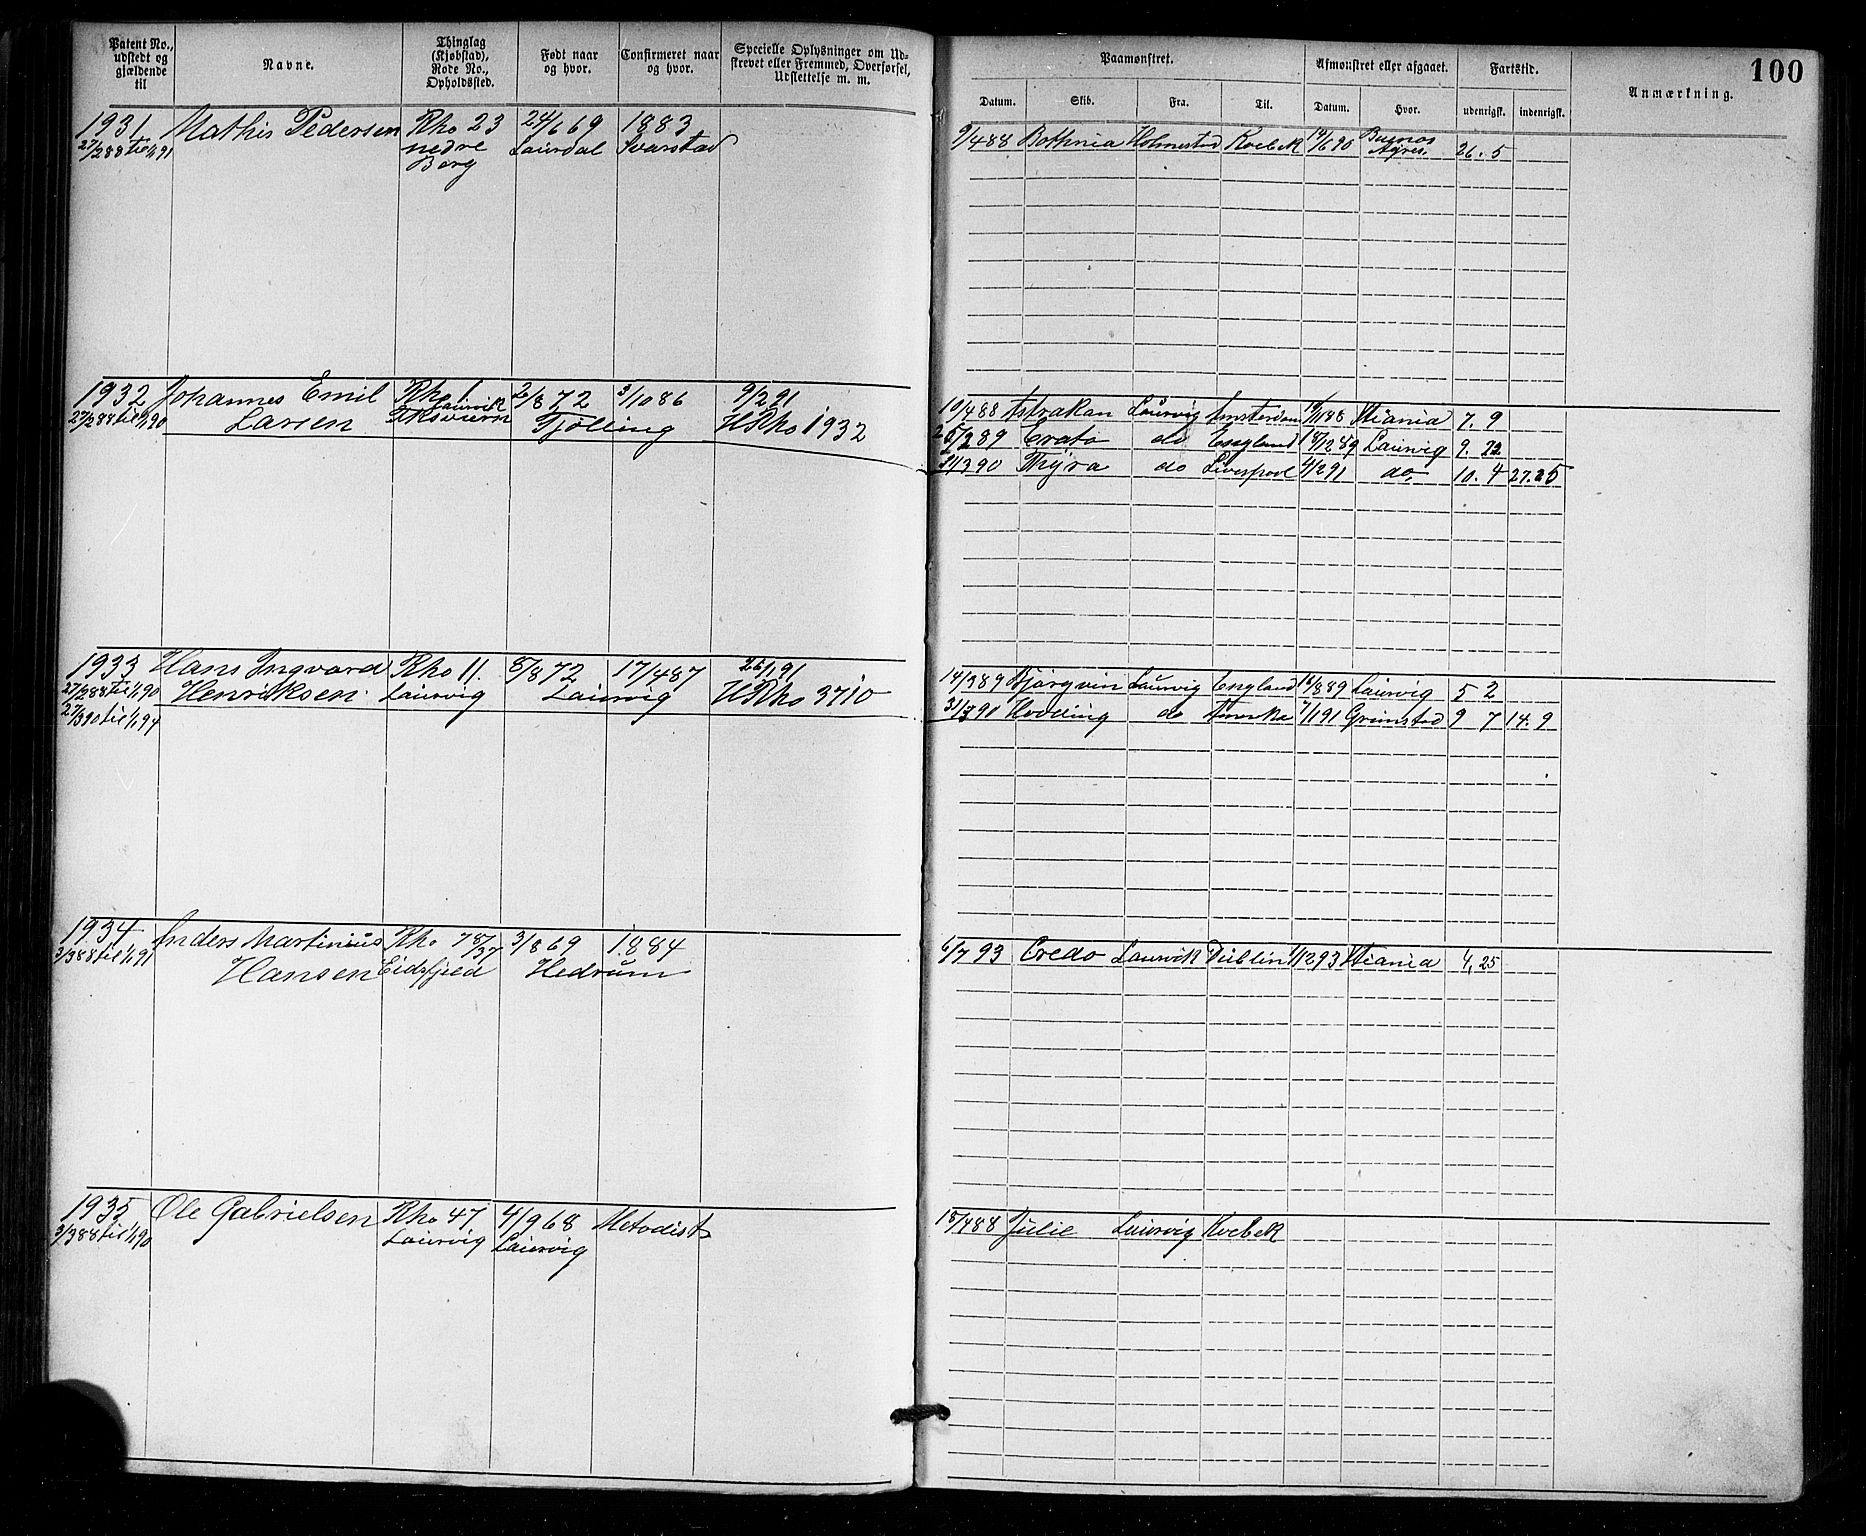 Patent No.,
udstedt og
gjældende
til
Navne.
Thinglag
(Kjøbstad),
Rode No.,
Opholdssted.
Født naar
og hvor.
Confirmeret naar
og hvor.
Specielle Oplysninger om Ud-
skrevet eller Fremmed, Overførsel,
Udslettelse m. m.
1931 Mathis Pedersen Rno 23 24/6 69 1883
27/2 88 til 1/1 91 nedre Laurdal Svarstad
Borg
1932 Johannes Emil Rno 1 2/8 72 3/10 86 9/2 91
27/2 88 til 1/1 90 Larsen Laurvik Tjølling HRno 1932
1933 Hans Ingvard Rno 11. 8/8 72 17/4 87 26/1 91
27/2 88 til 1/1 90 Henriksen Laurvig Laurvig HRno 3710
27/3 90 til 1/1 94
1934 Anders Martinius Rno 787/37 3/8 69 1884
3/3 88 til 1/1 91 Hansen Eidsfjeld Hedrum
1935 Ole Gabrielsen Rno 47 4/9 68 Metodist
3/3 88 til 1/1 90 Laurvig Laurvig
100
Paamønstret.
Afmønstret eller afgaaet.
Fartstid.
Anmærkning.
Datum. Skib. Fra. Til. Datum. Hvor. udenrigsk. indenrigsk.
9/4 88 Bothnia Holmestrd Kvebek 19/6 90 Buenos Ayres. 26. 5
10/4 88 Astrakan Laurvig Amsterdam 19/11 88 Xtiania 7. 9
do England 18/12 89 Laurvig 9. 22
Erato
31/3 90 Thyra do Liverpool 4/2 91 do, 10. 4 27.25
14/3 89 Bjørgvin Laurvig England 16/8 89 Laurvig 5 2
31/3 90 Hvoding do Amerka 7/1 91 Grimstad 9 7 14. 9
6/7 93 Credo Laurvik Dublin 1/12 93 Xtiania 4, 25
18/4 88 Julie Laurvig Kvebek